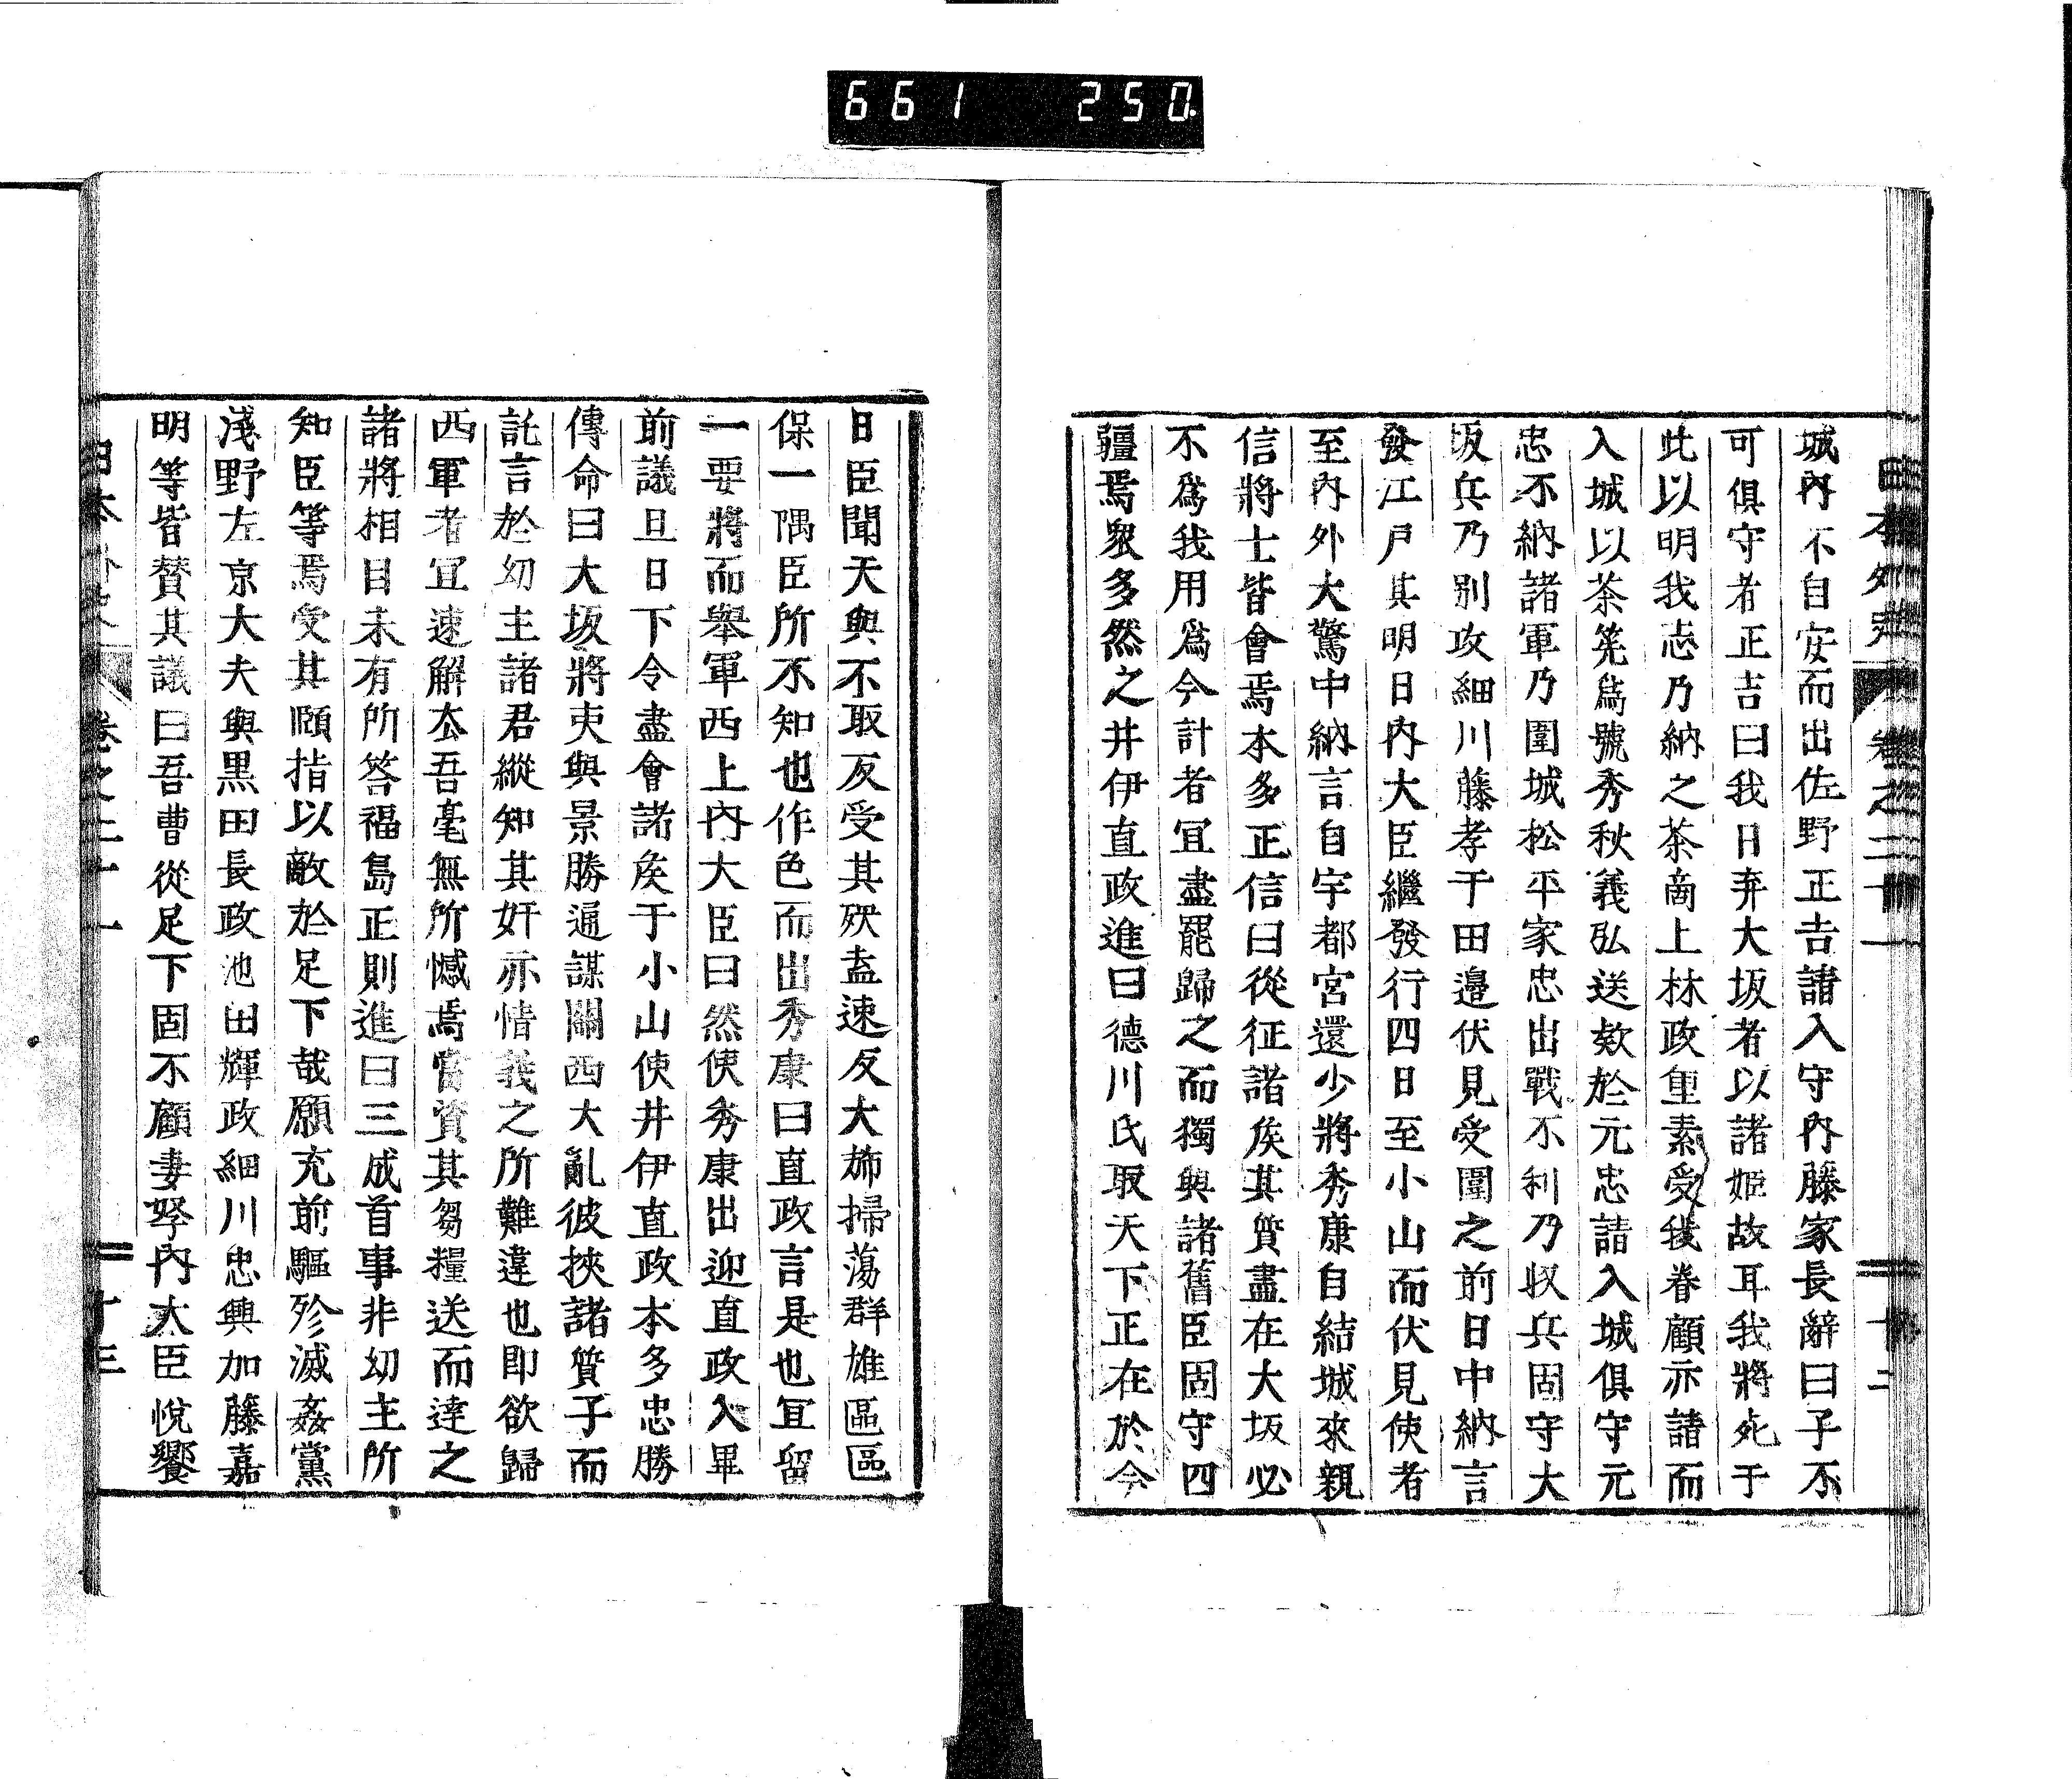 661 250
日本外史 卷之二十一 十二
城內不自安而出佐野正吉請入守內藤家長辭曰子不
可俱守者正吉曰我日弃大坂者以諸姬故耳我將死于
此以明我志乃納之茶商上林政重素受我眷顧亦請而
入城以茶筅爲號秀秋義弘送欵於元忠請入城俱守元
忠不納諸軍乃圍城松平家忠出戰不利乃收兵固守大
坂兵乃別攻細川藤孝于田邉伏見受圍之前日中納言
發江戶其明日內大臣繼發行四日至小山而伏見使者
至內外大驚中納言自宇都宮還少將秀康自結城來親
信將士皆會焉本多正信曰從征諸矦其質盡在大坂必
不爲我用爲今計者冝盡罷歸之而獨與諸舊臣固守四
疆焉衆多然之井伊直政進曰德川氏取天下正在於今
日臣聞天與不取反受其殃盍速反大斾掃蕩群雄區區
保一隅臣所不知也作色而出秀康曰直政言是也冝留
一要將而舉軍西上內大臣曰然使秀康出迎直政入畢
前議旦日下令盡會諸矦于小山使井伊直政本多忠勝
傳命曰大坂將吏與景勝通謀關西大亂彼挾諸質子而
託言於幼主諸君縱知其奸亦情義之所難違也即欲歸
西軍者冝速解去吾毫無所憾焉當資其芻糧送而達之
諸將相目未有所答福島正則進曰三成首事非幼主所
知臣等焉受其頤指以敵於足下哉願充前驅殄滅姦黨
淺野左京大夫與黒田長政池田輝政細川忠興加藤嘉
明等皆賛其議曰吾曹從足下固不顧妻孥內大臣悅饗
日本外史 卷之二十一 十三